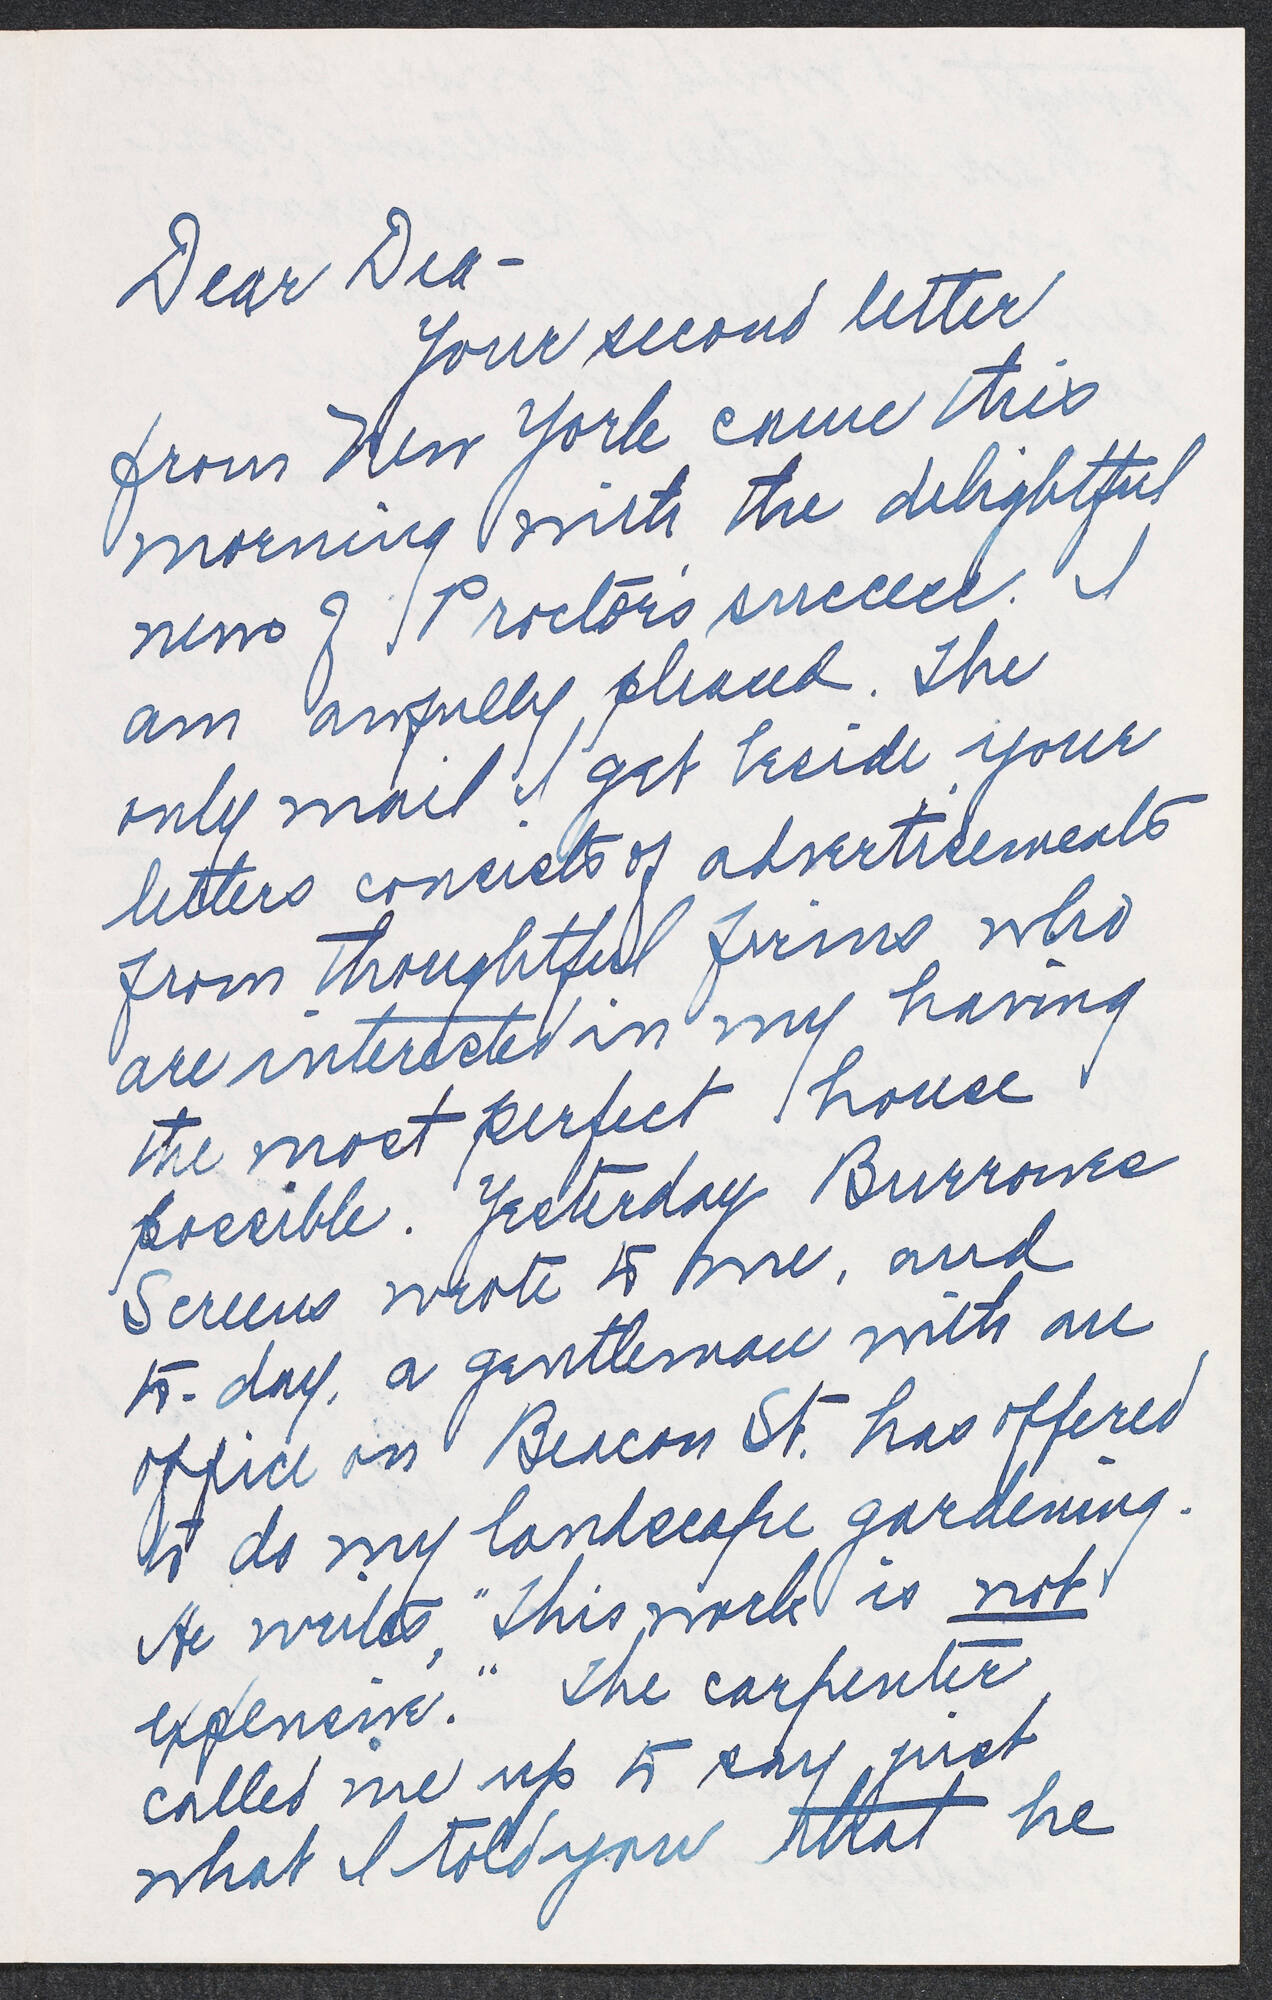 Dear Dea -
Your second letter
from New York came this
morning with the delightful
news of Proctor's success. I
am awfully pleased. The
only mail I get beside your
letters consists of advertisements
from thoughtful firms who
are interested in my having
the most perfect house
possible. Yesterday Burrowes
Screens wrote to me, and
to-day, a gentleman with an
office on Beacon St. has offered
to do my landscape gardening.
He writes, "This work is not
expensive." The carpenter
called me up to say just
what I told you that he